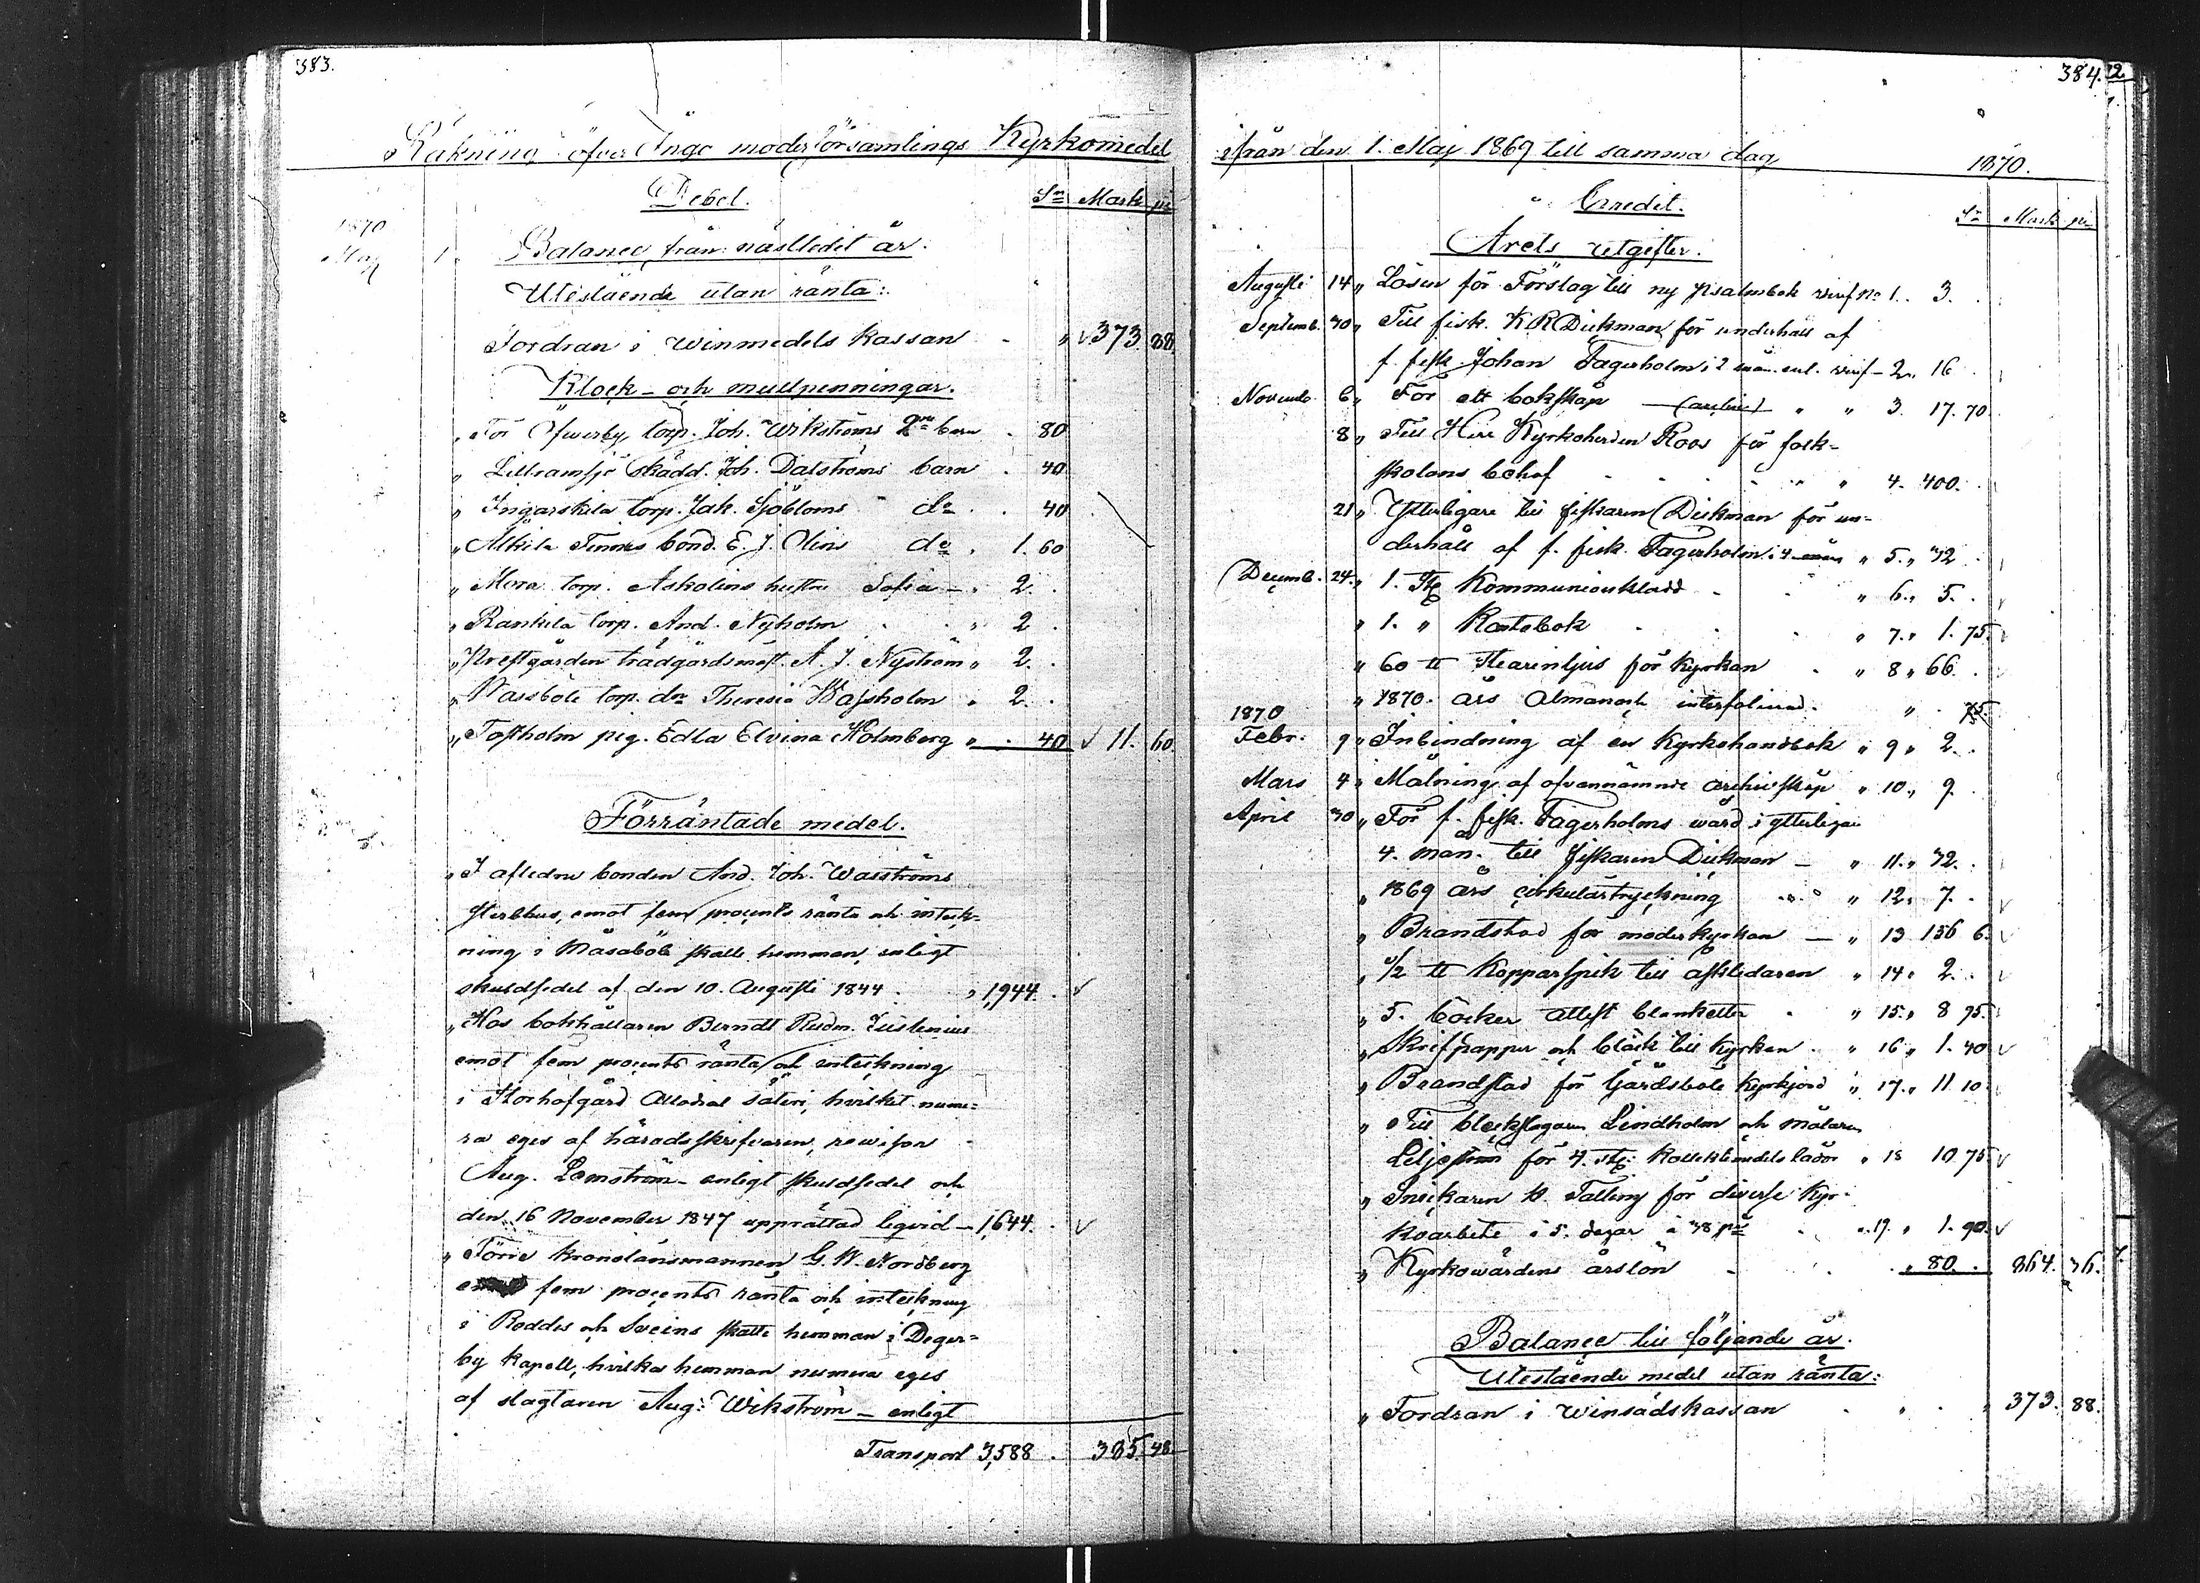 383.
Räkning öfver Ingo moderförsamlings Kyrkomedel
Debet.
Sr Mark pi
1870
Maj 1. Balance från nästledit år.
Utestående utan ränta:
Fordran i Winmedels kassan " 373. 88.
Klock- och mullpenningar.
" För Öfverby torp. Joh. Wikströms 2ne barn . 80
" Lillramsjö skädd. Joh. Dalströms barn . 40
" Ingarskila torp. Jak. Sjöbloms do . 40
" Älkila Finnes bond. E. J. Olins do . 1. 60
" Mora torp. Askolins hustru Sofia - " 2. .
" Rankila torp. And. Nyholm . . " 2 .
" Prestgården trädgårdsmäst. A. J. Nyström " 2. .
" Wassböle torp. dr Theresia Wassholm " 2. .
" Toftholm pig. Edla Elvina Holmberg " . 40 11. 60
Förräntade medel.
" I afledne bonden And. Joh. Wasströms
sterbhus, emot fem procents ränta och inteck-
ning i Måsaböle skatte hemman, enligt
skuldsedel af den 10. Augusti 1844 . " 1,944. .
" Hos bokhållaren Berndt Rudm. Juslenius
emot fem procents ränta och inteckning
i Storhofgård Allodial säteri, hvilket nume-
ra eges af häradsskrifvaren, revisor
Aug. Lemström - enligt skuldsedel och
den 16 November 1847 upprättad liqvid - 1,644. .
" Förre kronolänsmannen G. W. Nordberg
fem procents ränta och inteckning
i Roddes och Sveins skatte hemman i Deger-
by kapell, hvilka hemman numera eges
af slagtaren Aug: Wikström - enligt
Transport 3,588 . 385. 48.
384.
ifrån den 1. Maj 1869 till samma dag 1870.
Credit.
Sr Mark pi
Årets utgifter.
Augusti 14 " Lösen för Förslag till ny psalmbok verif No 1. 3. .
Septemb. 30 " Till fisk. K R Dickman för underhåll af
f. fisk. Johan Fagerholm i 2 mån. enl. verif - 2. 16 .
Novemb. 6 " För ett bokskåp " " 3. 17. 70
8 " Till Herr Kyrkoherden Roos för folk-
skolans behof " " 4. 400. .
21 " Ytterligare till fiskaren Dickman för un-
derhåll af f. fisk. Fagerholm i 4 mån " 5. " 32 .
Decemb. 24. " 1. St. Kommunionkladd . " 6. " 5. .
" 1. " Rotebok . " 7. " 1. 75.
" 60 ℔ Stearinljus för kyrkan . " 8 " 66. .
" 1870. års Almanack interfolierad. " . 75.
1870
Febr. 9 " Inbindning af en Kyrkohandbok " 9 " 2. .
Mars 4 " Målning af ofvannämnde archivskåp " 10 " 9. .
April 30 " För f. fisk. Fagerholms vård i ytterligare
4. mån. till fiskaren Dickman - " 11. " 32. .
" 1869 års cirkulärtryckning " 12. 7. .
" Brandstod för moderkyrkan - " 13 156 6.
" 1/2 ℔ Kopparspik till åskledaren " 14 " 2. .
" 5. böcker attest blanketter . " 15. " 8 95.
" Skrifpapper och bläck till Kyrkan . " 16 " 1. 40
" Brandstod för Gårdsböle Kyrkjord " 17. " 11. 10
" Till bleckslagaren Lindholm och målaren
Liljeström för 4. St. Kollektmedels lådor " 18 10. 75.
" Snickaren H. Falling för diverse Kyr-
koarbete i 5. dagar à 38 pi . " 19. " 1. 90.
" Kyrkowärdens årslön - . . " 80. . 864. 36.
Balance till följande år.
Utestående medel utan ränta:
" Fordran i Winsädskassan . " . " 373. 88.